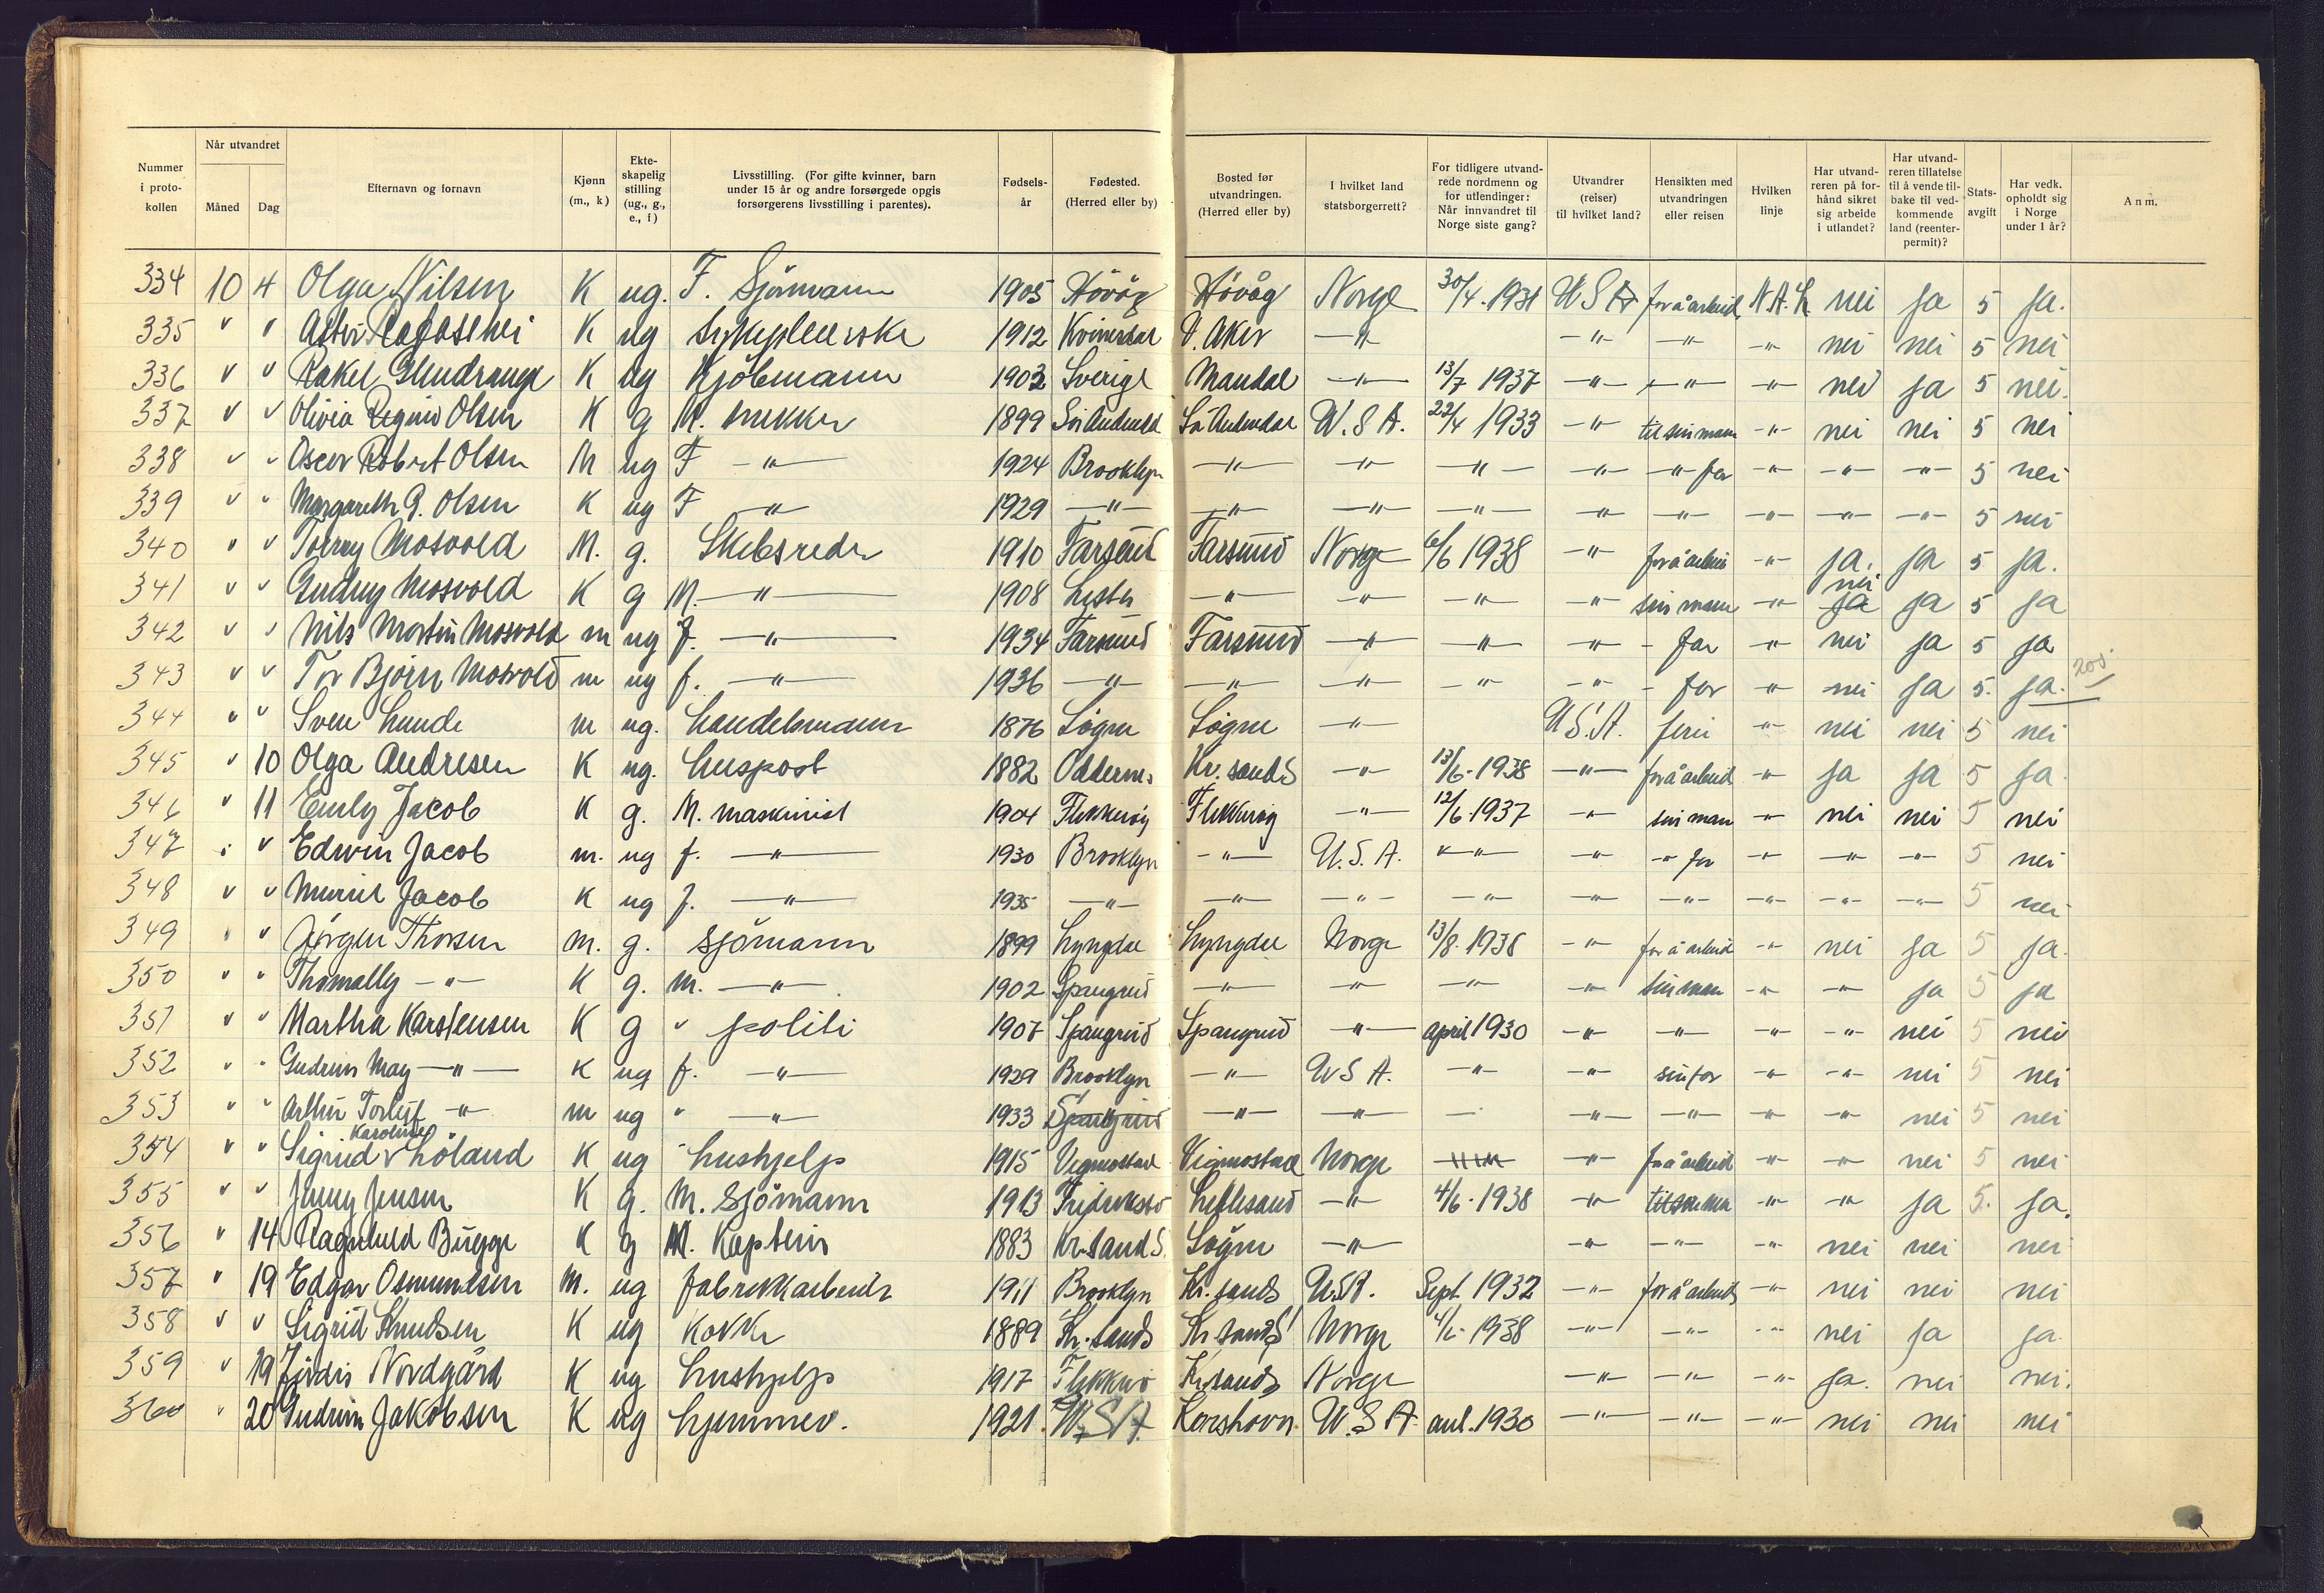 Nummer i proto- kollen | Når utvandret Måned Dag | Efternavn og fornavn | Kjønn (m., k) | Ekte- skapelig stilling (ug., g., e., f) | Livsstilling. (For gifte kvinner, barn under 15 år og andre forsørgede opgis forsørgerens livsstilling i parentes). | Fødsels- år | Fødested. (Herred eller by) | Bosted før utvandringen. (Herred eller by) | I hvilket land statsborgerrett? | For tidligere utvand- rede nordmenn og for utlendinger: Når innvandret til Norge siste gang? | Utvandrer (reiser) til hvilket land? | Hensikten med utvandringen eller reisen | Hvilken linje | Har utvand- reren på for- hånd sikret sig arbeide i utlandet? | Har utvand- reren tillatelse til å vende til- bake til ved- kommende land (reenter- permit)? | Stats- avgift | Har vedk. opholdt sig i Norge under 1 år? | Anm.
334 10 4 Olga Nilsen K ug. F. Sjömann 1905 Hövåg Hövåg Norge 30/4 - 1931 U S A for å arbeid N.A.L nei ja 5 ja.
335 " " K ug 1912 Kvinesdal V. Aker -"- -"- -"- -"- nei nei 5 nei
336 " " Rakel K ug Kjöbmann 1903 Sverige Mandal -"- 13/7 1937 -"- -"- -"- nei ja 5 nei.
337 " " Olivia Regine Olsen K g M. snekker 1899 Sör Audnedal Sör Audnedal U.S.A. 22/4 1933 -"- til sin mann -"- nei nei 5 nei
338 " " Oscar Robert Olsen M ug F -"- 1924 Brooklyn -"- -"- -"- -"- -"- far -"- -"- -"- 5 nei
339 " " Margareth R. Olsen K ug F -"- 1929 -"- -"- -"- -"- -"- -"- -"- -"- -"- 5 nei
340 " " Mosvold M. g. Skibsreder 1910 Farsund Farsund Norge 6/6 1938 -"- for å arbeid -"- ja. ja 5 ja.
341 " " Gudny Mosvold K g M. -"- 1908 Lyster -"- -"- -"- -"- sin mann -"- nei ja ja 5 ja
342 " " Nils Martin Mosvold m ug f. -"- 1934 Farsund Farsund -"- -"- -"- - far -"- nei ja 5 ja
343 " " Tor Björn Mosvold m ug f. -"- 1936 -"- -"- -"- -"- -"- - far -"- nei ja 5. ja. 205.
344 " " Sven Lunde m ug. handelsmann 1876 Sögne Sögne -"- U.S.A. ferie -"- nei nei 5 nei
345 " 10 Olga Andresen K ug. huspost 1882 Oddernes Kr. sand S -"- 13/6 - 1938 -"- for å arbeid -"- ja ja 5 ja.
346 " 11 Emly Jacob K g. M. maskinist 1904 Flekkeröy Flekkeröy -"- 12/6 - 1937 -"- sin man -"- nei nei 5 nei
347 " " Edwin Jacob m. ug f. -"- 1930 Brooklyn -"- U.S.A. -"- -"- -"- far -"- -"- -"- 5 nei
348 " " Muriel Jacob K ug f. -"- 1935 -"- -"- -"- -"- -"- -"- -"- -"- -"- 5 nei
349 " " Jörgen Thorsen m. g. sjömann 1899 Lyngdal Lyngdal Norge 13/8 - 1938 -"- for å arbeid -"- nei ja 5 ja.
350 " " Thomally -"- K g. m. -"- 1902 Spangreid -"- -"- -"- -"- sin man -"- -"- ja 5 ja
351 " " Martha Karstensen K g " politi 1907 Spangreid Spangreid -"- april 1930 -"- -"- -"- -"- nei 5 nei
352 " " Gudrun May -"- K ug f. -"- 1929 Brooklyn -"- U S A. -"- -"- sin far -"- -"- nei 5 nei
353 " " Arthur Torleif -"- m ug " -"- 1933 Spangreid -"- -"- - -"- -"- -"- -"- nei 5 nei
354 " " Sigrid Karoline Löland K ug hushjelp 1915 Vigmostad Vigmostad Norge -"- for å arbeid -"- -"- nei 5 nei
355 " " Jenny Jensen K g. M. Sjömann 1913 Fredrikstad Lillesand -"- 4/6 - 1938 -"- til sin man -"- -"- ja 5. ja.
356 " 14 Ragnhild Bugge K g M. Kaptein 1883 Kr.sand S. Sögne -"- -"- -"- -"- nei nei nei
357 " 19 Edgar Osmundsen M. ug fabrikkarbeider 1911 Brooklyn Kr. sand S U.S.A. Sept 1932 -"- for å arbeid -"- nei nei nei
358 " " Sigrid Knudsen K ug Kokke 1889 Kr. sand S Kr sand S Norge 4/6 - 1938 -"- -"- -"- nei ja ja.
359 " 19 Nordgård K ug hushjelp 1917 Flekkerö Kr.sand S Norge -"- -"- -"- ja. nei nei.
360 " 20 Gudrun Jakobsen K ug hjemmev. 1921 U.S.A. Korshavn. U.S.A 1930 -"- -"- -"- nei nei nei